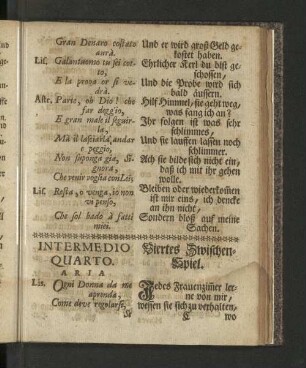 Gran Denaro costato
aurà.
Lis. Galantuomo tu sei cot-
to,
E la prova or si ve-
drà.
Aste. Parte, oh Dio! che
far deggio,
E gran male il seguir-
la,
Mà il lasciarla, andar
o peggio,
Non supponga già, Si-
gnora,
Che venir voglia con Lei;
Lis. Resta, o venga, io non
vi penso,
Che sol bado à fatti
miei.
INTERMEDIO
QUARTO.
ARIA
Lis. Ogni Donna da me
aprenda,
Come deve regolarsi,
Und er wird groß Geld ge-
kostet haben.
Ehrlicher Kerl du bist ge-
schossen,
Und die Probe wird sich
bald äussern.
Hilf Himmel, sie geht weg,
was fang ich an?
Ihr folgen ist was sehr
schlimmes,
Und sie lauffen lassen noch
schlimmer.
Ach sie bilde sich nicht ein,
daß ich mit ihr gehen
wolle.
Bleiben oder wiederkommen
ist mir eins, ich dencke
an ihn nicht,
Sondern bloß auf meine
Sachen.
Viertes Zwischen-
Spiel.
Jedes Frauenzimer ler-
ne von mir,
wessen sie sich zu verhalten,
wo